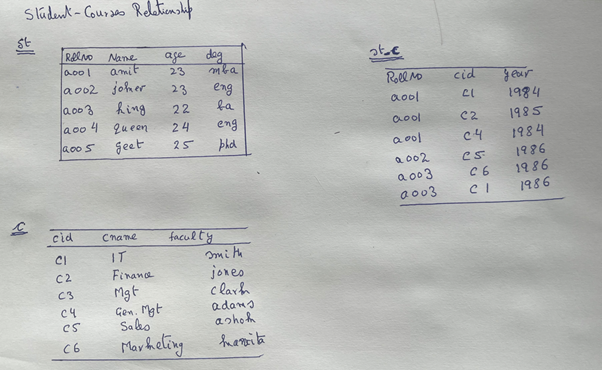 Student-Courses Relationship
st
RollNo Name age deg
a001 amit 23 mba
a002 joker 23 eng
a003 king 22 ba
a004 queen 24 eng
a005 geet 25 phd
st-c
RollNo cid year
a001 C1 1984
a001 C2 1985
a001 C4 1984
a002 C5 1986
a003 C6 1986
a003 C1 1986
c
cid cname faculty
C1 IT smith
C2 Finance jones
C3 Mgt clark
C4 Gen. Mgt adams
C5 Sales ashok
C6 Marketing